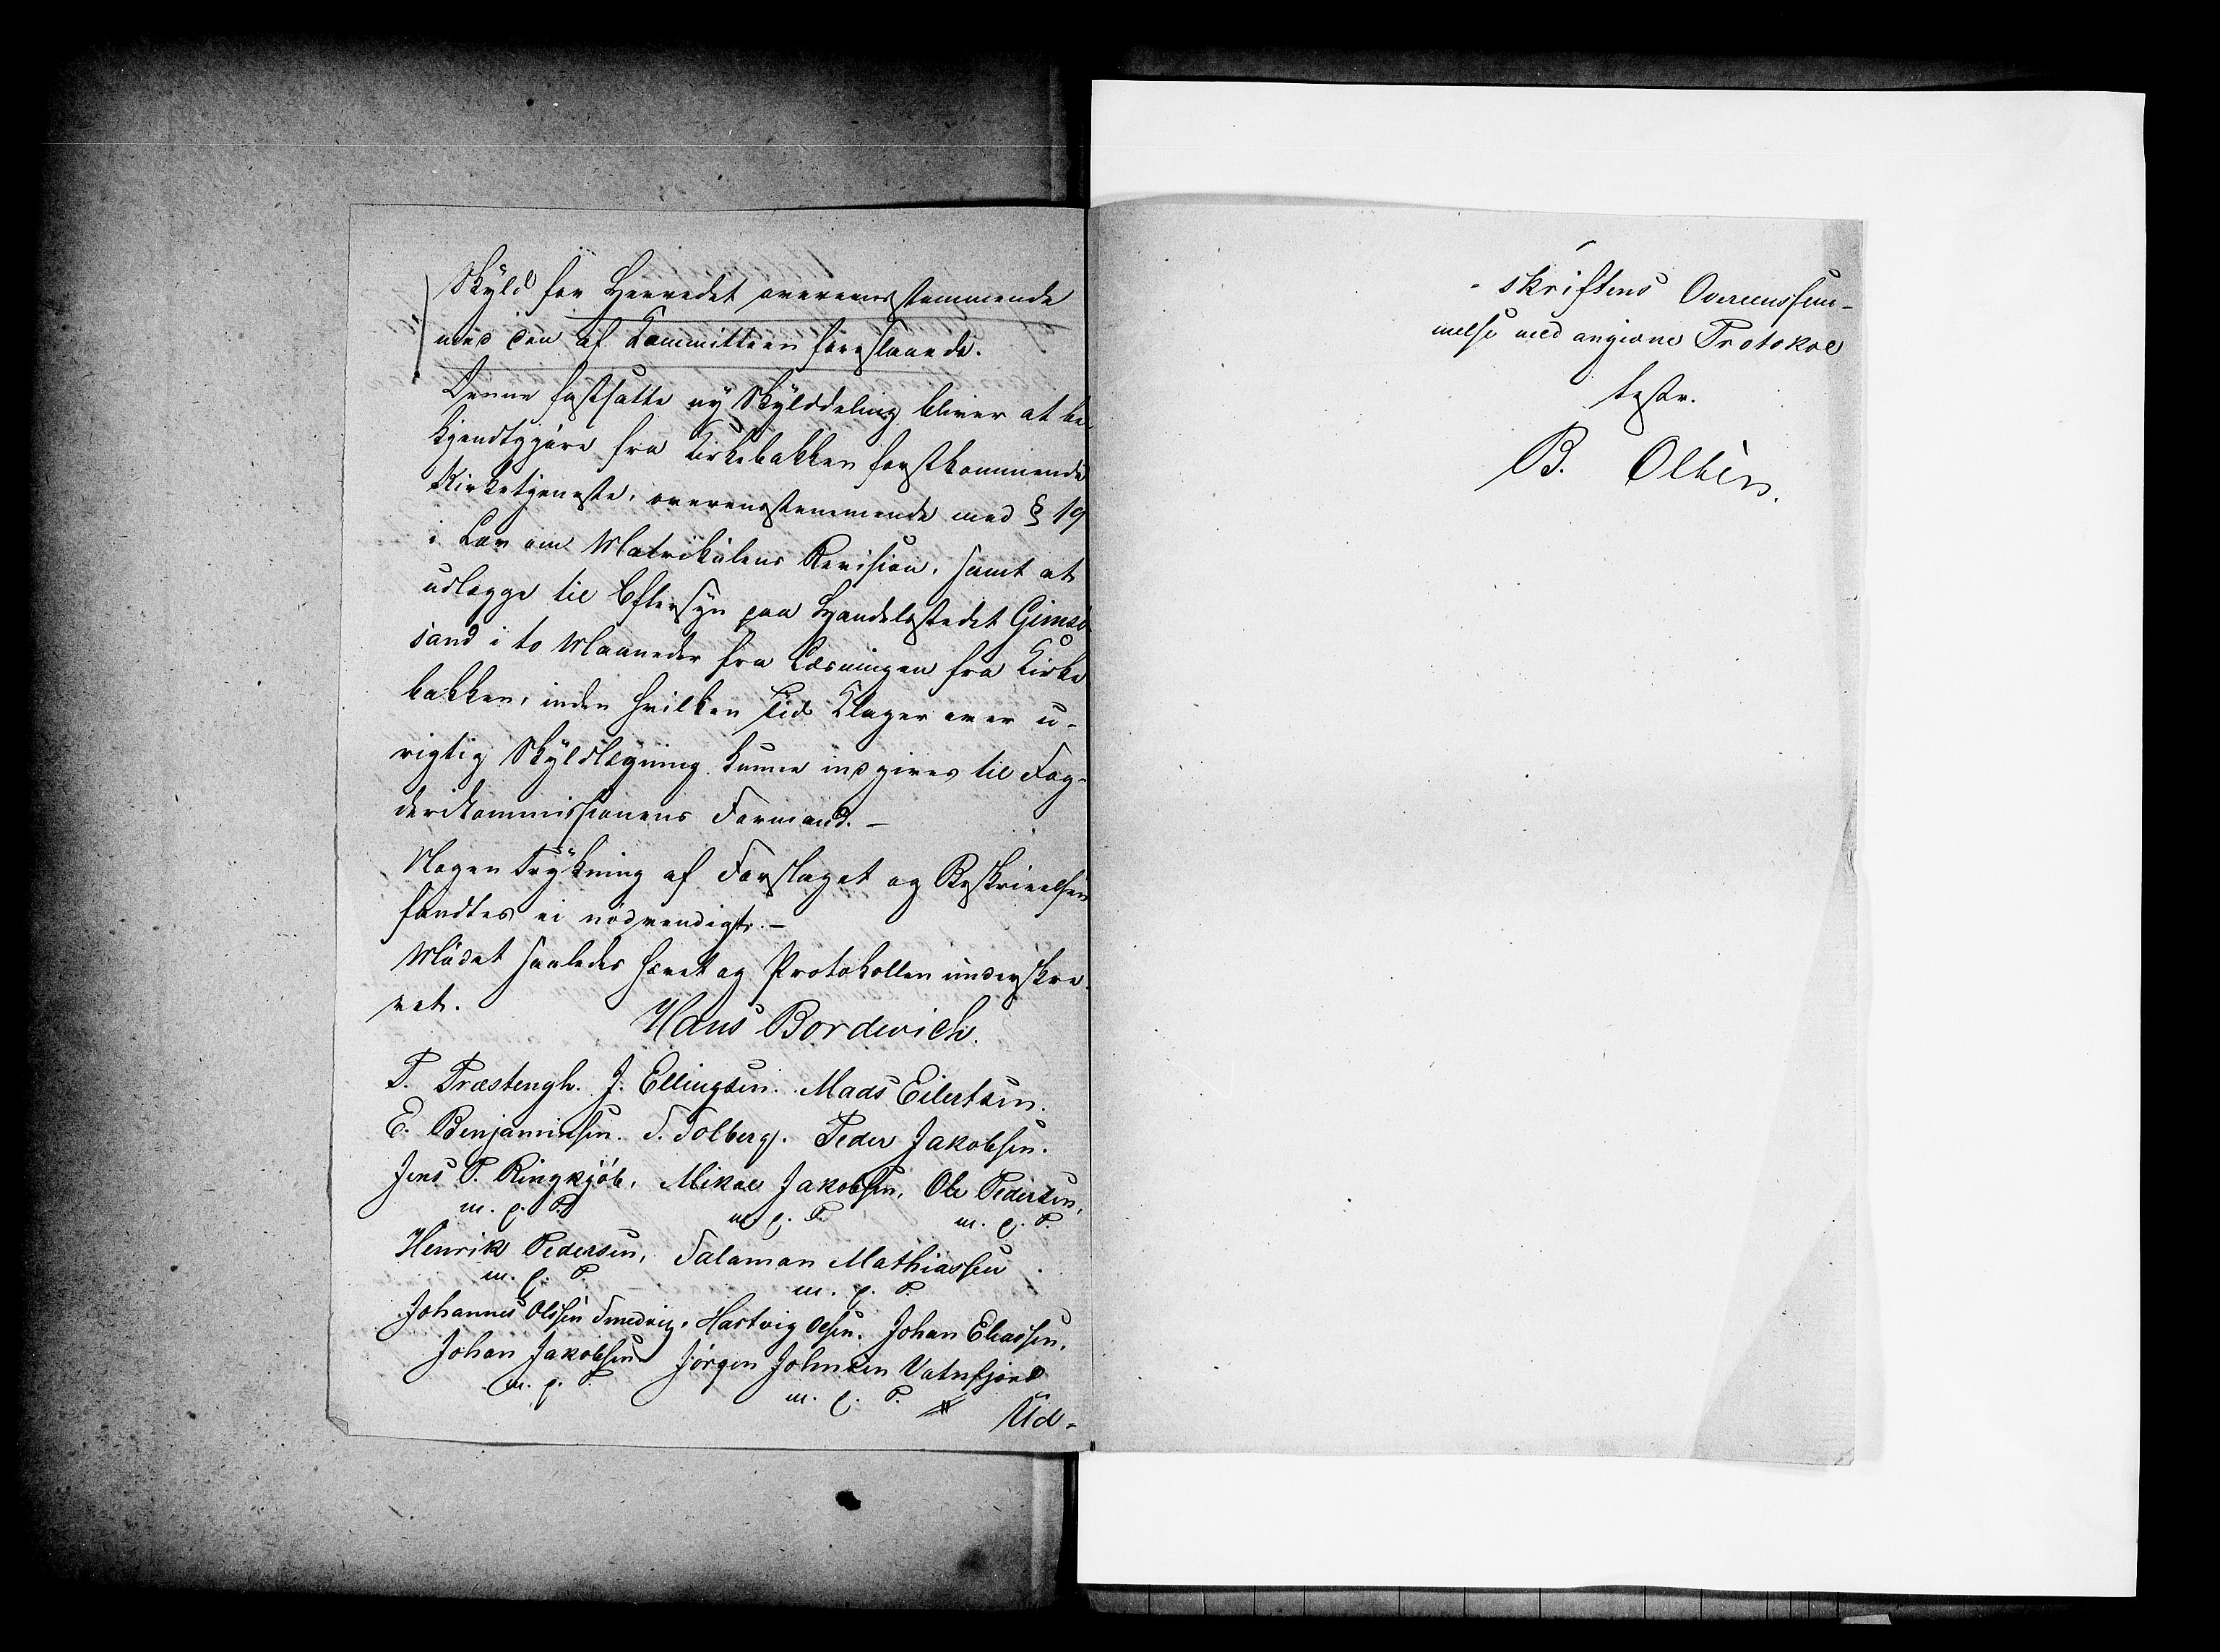 Skyld for Herredet overensstemmende
med den af Kommitteen foreslaaede.
Denne fastsatte ny Skylddeling bliver at be-
kjendtgjøre fra Kirkebakken førstkommende
Kirketjeneste, overensstemmende med § 19
i Lov om Matrikulens Revision, samt at
udlægge til Eftersyn paa Handelsstedet Gimsö-
sand i to Maaneder fra Læsningen fra Kirke-
bakken, inden hvilken Tid Klager over u-
rigtig Skyldlægning kunne indgives til Fog-
derikommissionens Formand. –
Nogen Trykning af Forslaget og Beskrivelsen
fandtes ei nödvendigt. –
Mödet saaledes hævet og Protokollen underskre-
vet.
Hans Bordewich.
P. Præstengh. J. Ellingsen. Mads Eilertsen.
E. Benjaminsen. S. Solberg. Peder Jakobsen.
Jens P. Ringkjöb, Mikal Jakobsen, Ole Pedersen,
m. p. P. m. p. P. m. p. P.
Henrik Pedersen, Salaman Mathiassen
m. p. P. m. p. P.
Johannes Olsen Smedvig. Hartvig Olsen. Johan Eliassen.
Johan Jakobsen Jörgen Johnsen Vatnfjord
m. p. P. m. p. P.
Ud-
- skriftens Overensstem-
melse med angivne Protokol
test.
B. Olsen.